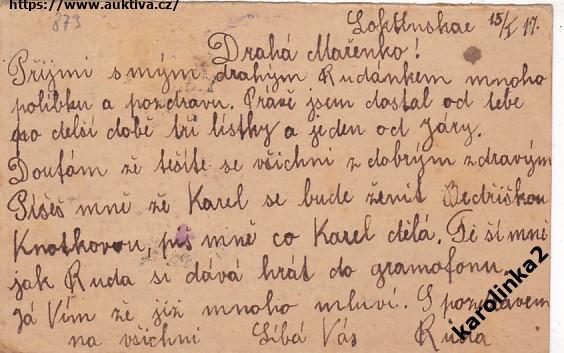 https://www.auktiva.cz/
873
Loktinskae 15/I 17.
Drahá Mařenko!
Přijmi s mým drahým Rudánkem mnoho
polibku a pozdravu. Právě jsem dostal od tebe
po delší době tři lístky a jeden od Járy.
Doufám že těšíte se všichni z dobrým zdravým
Píšeš mně že Karel se bude ženit Bedřiškou
Knotkovou, piš mině co Karel dělá. Tě ší mně
jak Ruda si dává hrát do gramofonu.
Já Vím že již mnoho mluví. S pozdravem
na všichni Líbá Vás Ruda
karolinka2